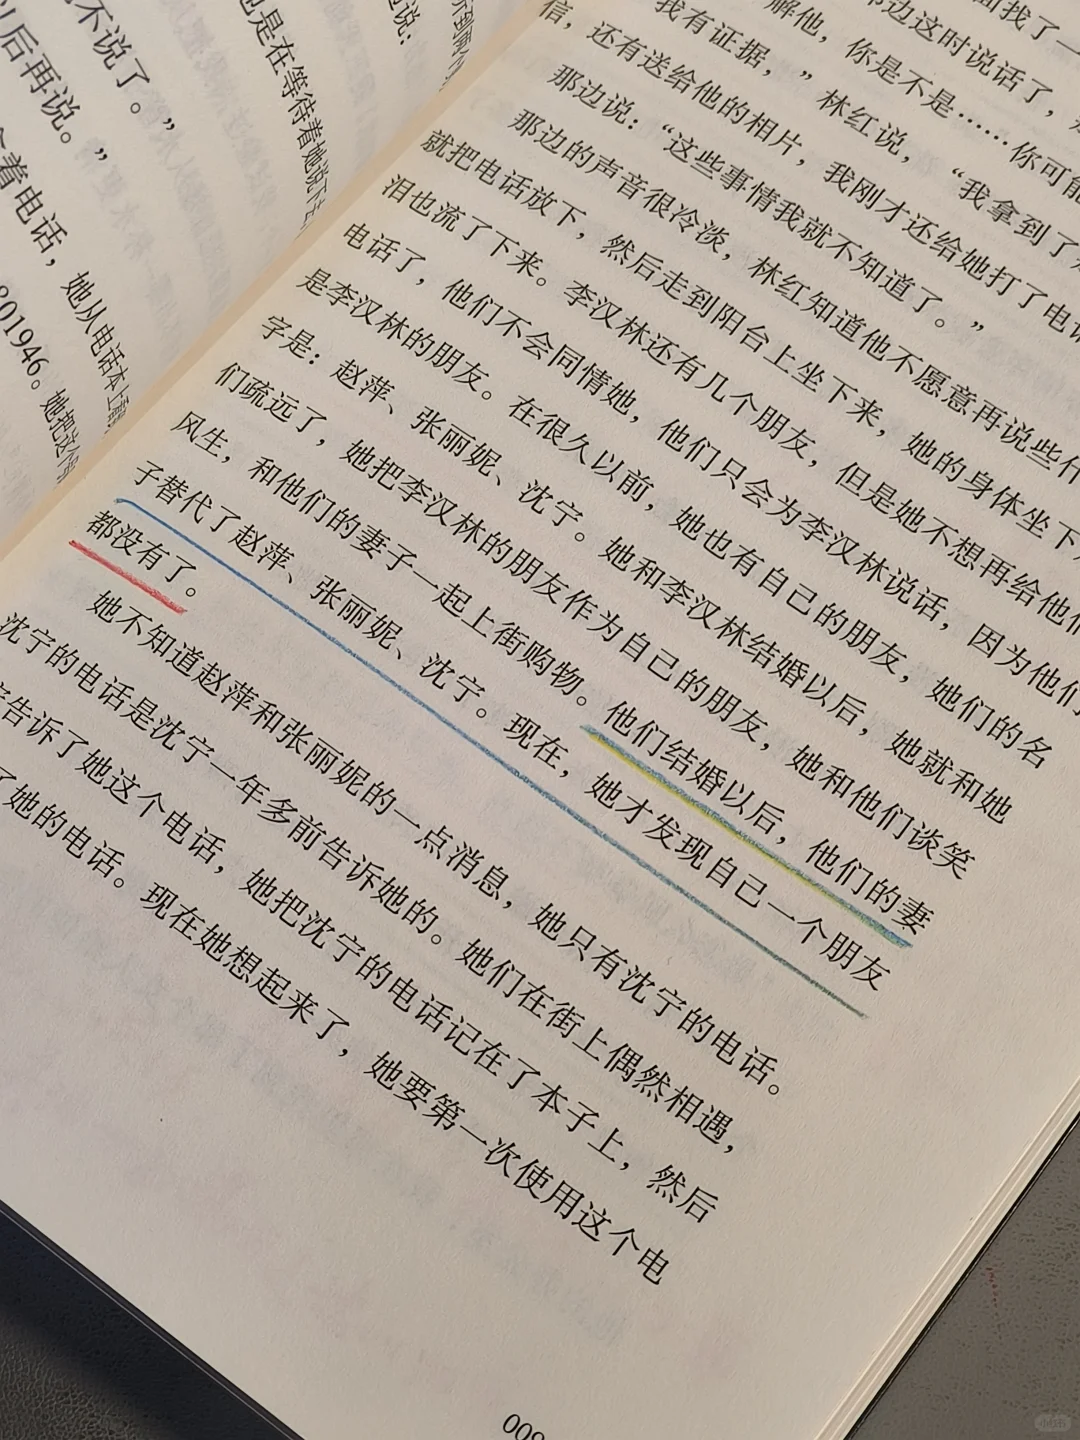 不说了。”
以后再说。”
着电话，她从电话本上翻
801946。她把这个号
也是在等待着她说下去
说：
面找了一
那边这时说话了，
解他，你是不是……你可能
我有证据，”林红说，“我拿到了
信，还有送给他的相片，我刚才还给她打了电话
那边说：“这些事情我就不知道了。”
那边的声音很冷淡，林红知道他不愿意再说些什
就把电话放下，然后走到阳台上坐下来，她的身体坐下
泪也流了下来。李汉林还有几个朋友，但是她不想再给他们
电话了，他们不会同情她，他们只会为李汉林说话，因为他们
是李汉林的朋友。在很久以前，她也有自己的朋友，她们的名
字是：赵萍、张丽妮、沈宁。她和李汉林结婚以后，她就和她
们疏远了，她把李汉林的朋友作为自己的朋友，她和他们谈笑
风生，和他们的妻子一起上街购物。他们结婚以后，他们的妻
子替代了赵萍、张丽妮、沈宁。现在，她才发现自己一个朋友
都没有了。
她不知道赵萍和张丽妮的一点消息，她只有沈宁的电话。
沈宁的电话是沈宁一年多前告诉她的。她们在街上偶然相遇，
告诉了她这个电话，她把沈宁的电话记在了本子上，然后
了她的电话。现在她想起来了，她要第一次使用这个电
009